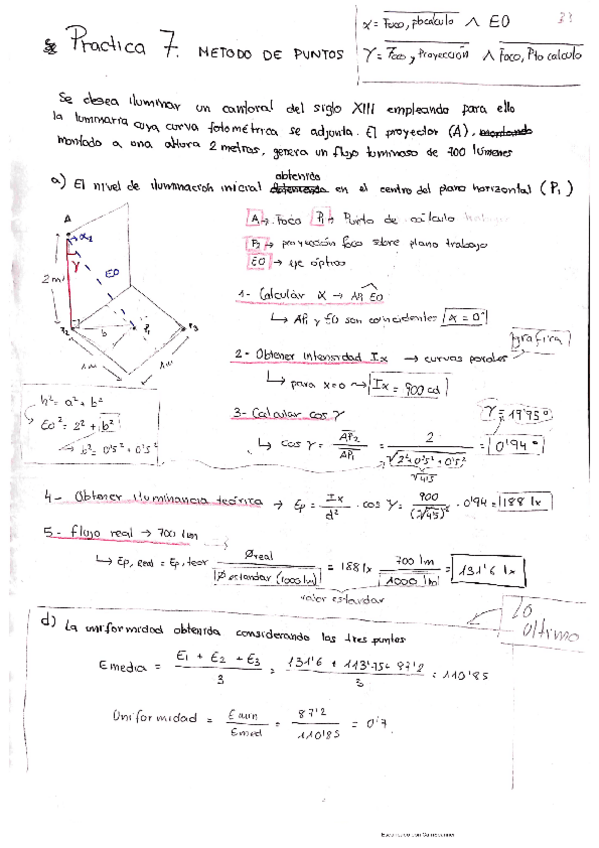 Practica 7. METODO DE PUNTOS
α = Foco, ptocalculo ∧ EO
33
γ = Foco, Proyección ∧ Foco, Pto calculo
Se desea iluminar un cantoral del siglo XIII empleando para ello
la luminaria cuya curva fotométrica se adjunta. El proyector (A),
montado a una altura 2 metros, genera un flujo luminoso de 700 lúmenes
a) El nivel de iluminación inicial obtenido en el centro del plano horizontal (P1)
A → Foco P1 → Punto de cálculo
P2 → proyección foco sobre plano trabajo
EO → eje óptico
A
γ
EO
2 m
P2
b
P1
P3
1m
1m
1- Calcular α → AP1 EO
↳ AP1 y EO son coincidentes α = 0°
2- Obtener intensidad Ix → curvas polares
↳ para x=0 → Ix = 900 cd
3- Calcular cos γ
γ = 19'75°
↳ cos γ = AP2 / AP1 = 2 / √(2² + 0'5² + 0'5²) = 0'94
√4'5
h² = a² + b²
EO² = 2² + b²
→ b² = 0'5² + 0'5²
4- Obtener iluminancia teórica → Ep = Ix / d² · cos γ = 900 / (√4'5)² · 0'94 = 188 lx
5- Flujo real → 700 lm
↳ Ep, real = Ep, teor Φreal / Φ estandar (1000 lm) = 188 lx 700 lm / 1000 lm = 131'6 lx
valor estandar
Lo
ultimo
d) La uniformidad obtenida considerando los tres puntos
E media = E1 + E2 + E3 / 3 = 131'6 + 113'75 + 87'2 / 3 = 110'85
Uniformidad = Emin / Emed = 87'2 / 110'85 = 0'7